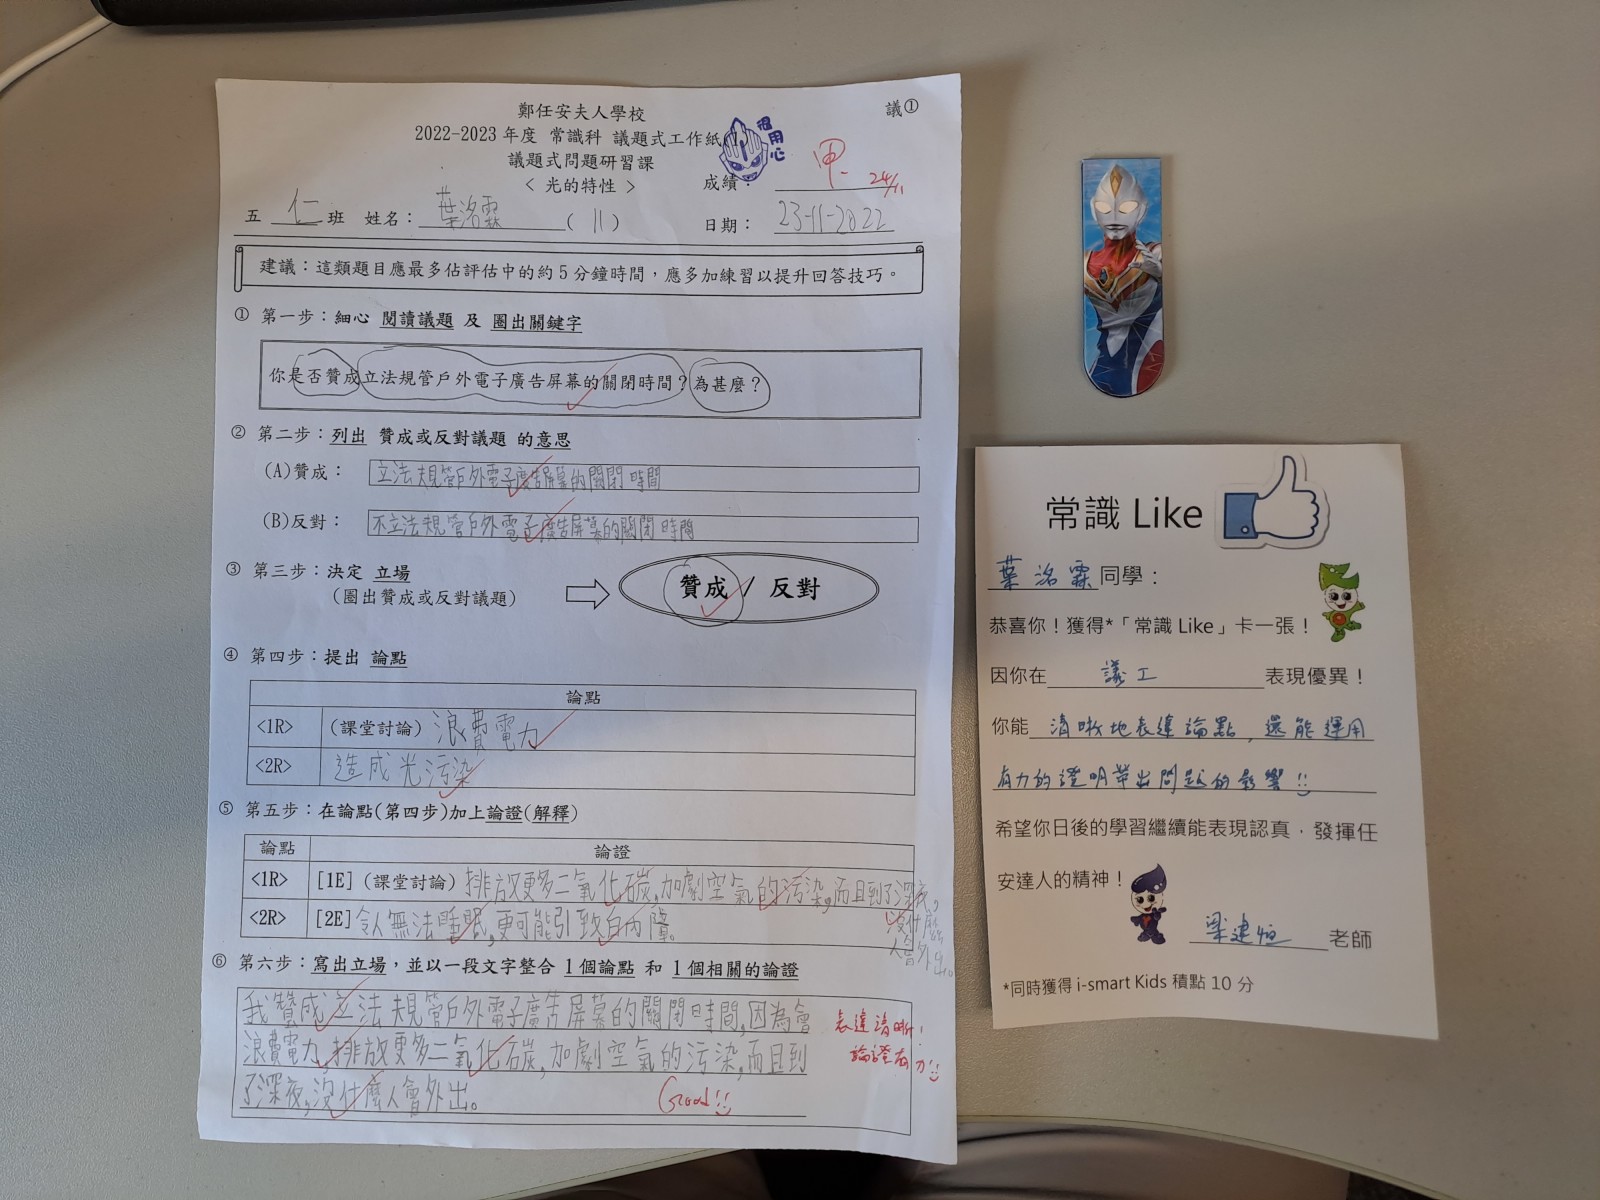 鄭任安夫人學校
議①
2022-2023 年度 常識科 議題式工作紙
議題式問題研習課
< 光的特性 >
很用心
成績：甲- 24/11
五 仁 班 姓名：葉洺霖 ( 11 ) 日期：23-11-2022
建議：這類題目應最多佔評估中的約 5 分鐘時間，應多加練習以提升回答技巧。
① 第一步：細心 閱讀議題 及 圈出關鍵字
你是否贊成立法規管戶外電子廣告屏幕的關閉時間？為甚麼？
② 第二步：列出 贊成或反對議題 的意思
(A)贊成： 立法規管戶外電子廣告屏幕的關閉時間
(B)反對： 不立法規管戶外電子廣告屏幕的關閉時間
③ 第三步：決定 立場
(圈出贊成或反對議題)
贊成 / 反對
④ 第四步：提出 論點
論點
<1R> (課堂討論) 浪費電力
<2R> 造成光污染
⑤ 第五步：在論點(第四步)加上論證(解釋)
論點 論證
<1R> [1E] (課堂討論) 排放更多二氧化碳,加劇空氣的污染,而且到了深夜,
沒什麼
人會外
出。
<2R> [2E] 令人無法睡眠,更可能引致白內障。
⑥ 第六步：寫出立場，並以一段文字整合 1 個論點 和 1 個相關的論證
我贊成立法規管戶外電子廣告屏幕的關閉時間,因為會
浪費電力,排放更多二氧化碳,加劇空氣的污染,而且到
了深夜,沒什麼人會外出。
表達清晰！
論證有力!!
Good!!
常識 Like
葉洺霖同學：
恭喜你！獲得*「常識 Like」卡一張！
因你在 議工 表現優異！
你能 清晰地表達論點，還能運用
有力的證明帶出問題的影響!!
希望你日後的學習繼續能表現認真，發揮任
安達人的精神！
梁建恒 老師
*同時獲得 i-smart Kids 積點 10 分